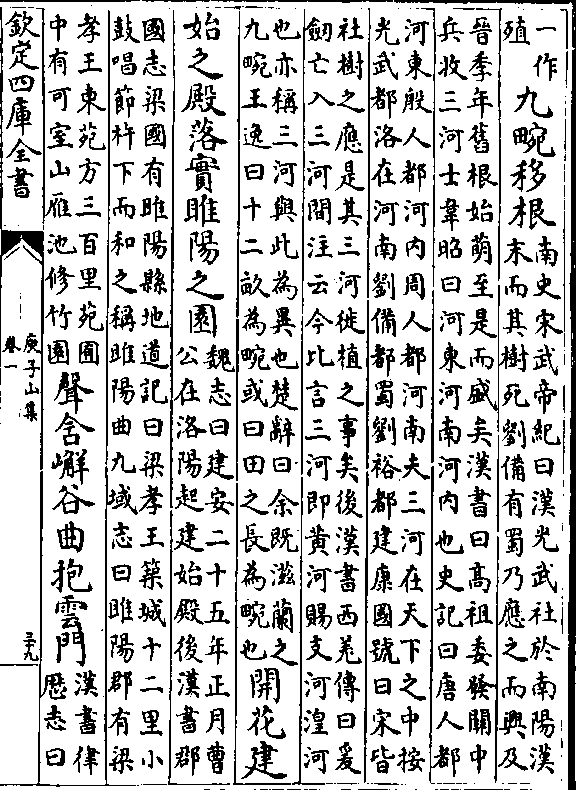 一作
殖
九畹移根
南史宋武帝紀曰漢光武社於南陽漢
末而其樹死劉備有蜀乃應之而興及
晉季年舊根始萌至是而盛矣漢書曰高祖委發關中
兵收三河士韋昭曰河東河南河内也史記曰唐人都
河東殷人都河内周人都河南夫三河在天下之中按
光武都洛在河南劉備都蜀劉裕都建康國號曰宋皆
社樹之應是其三河徙植之事矣後漢書西羌傳曰爰
劒亡入三河間注云今此言三河即黄河賜支河湟河
也亦稱三河與此為異也楚辭曰余既滋蘭之
九畹王逸曰十二畝為畹或曰田之長為畹也
開花建
始之殿落實睢陽之園
魏志曰建安二十五年正月曹
公在洛陽起建始殿後漢書郡
國志梁國有睢陽縣地道記曰梁孝王築城十二里小
鼓唱節杵下而和之稱睢陽曲九域志曰睢陽郡有梁
孝王東苑方三百里苑囿
中有可室山雁池修竹園
聲含嶰谷曲抱雲門
漢書律
厯志曰
欽定四庫全書
庾子山集
卷一
三九